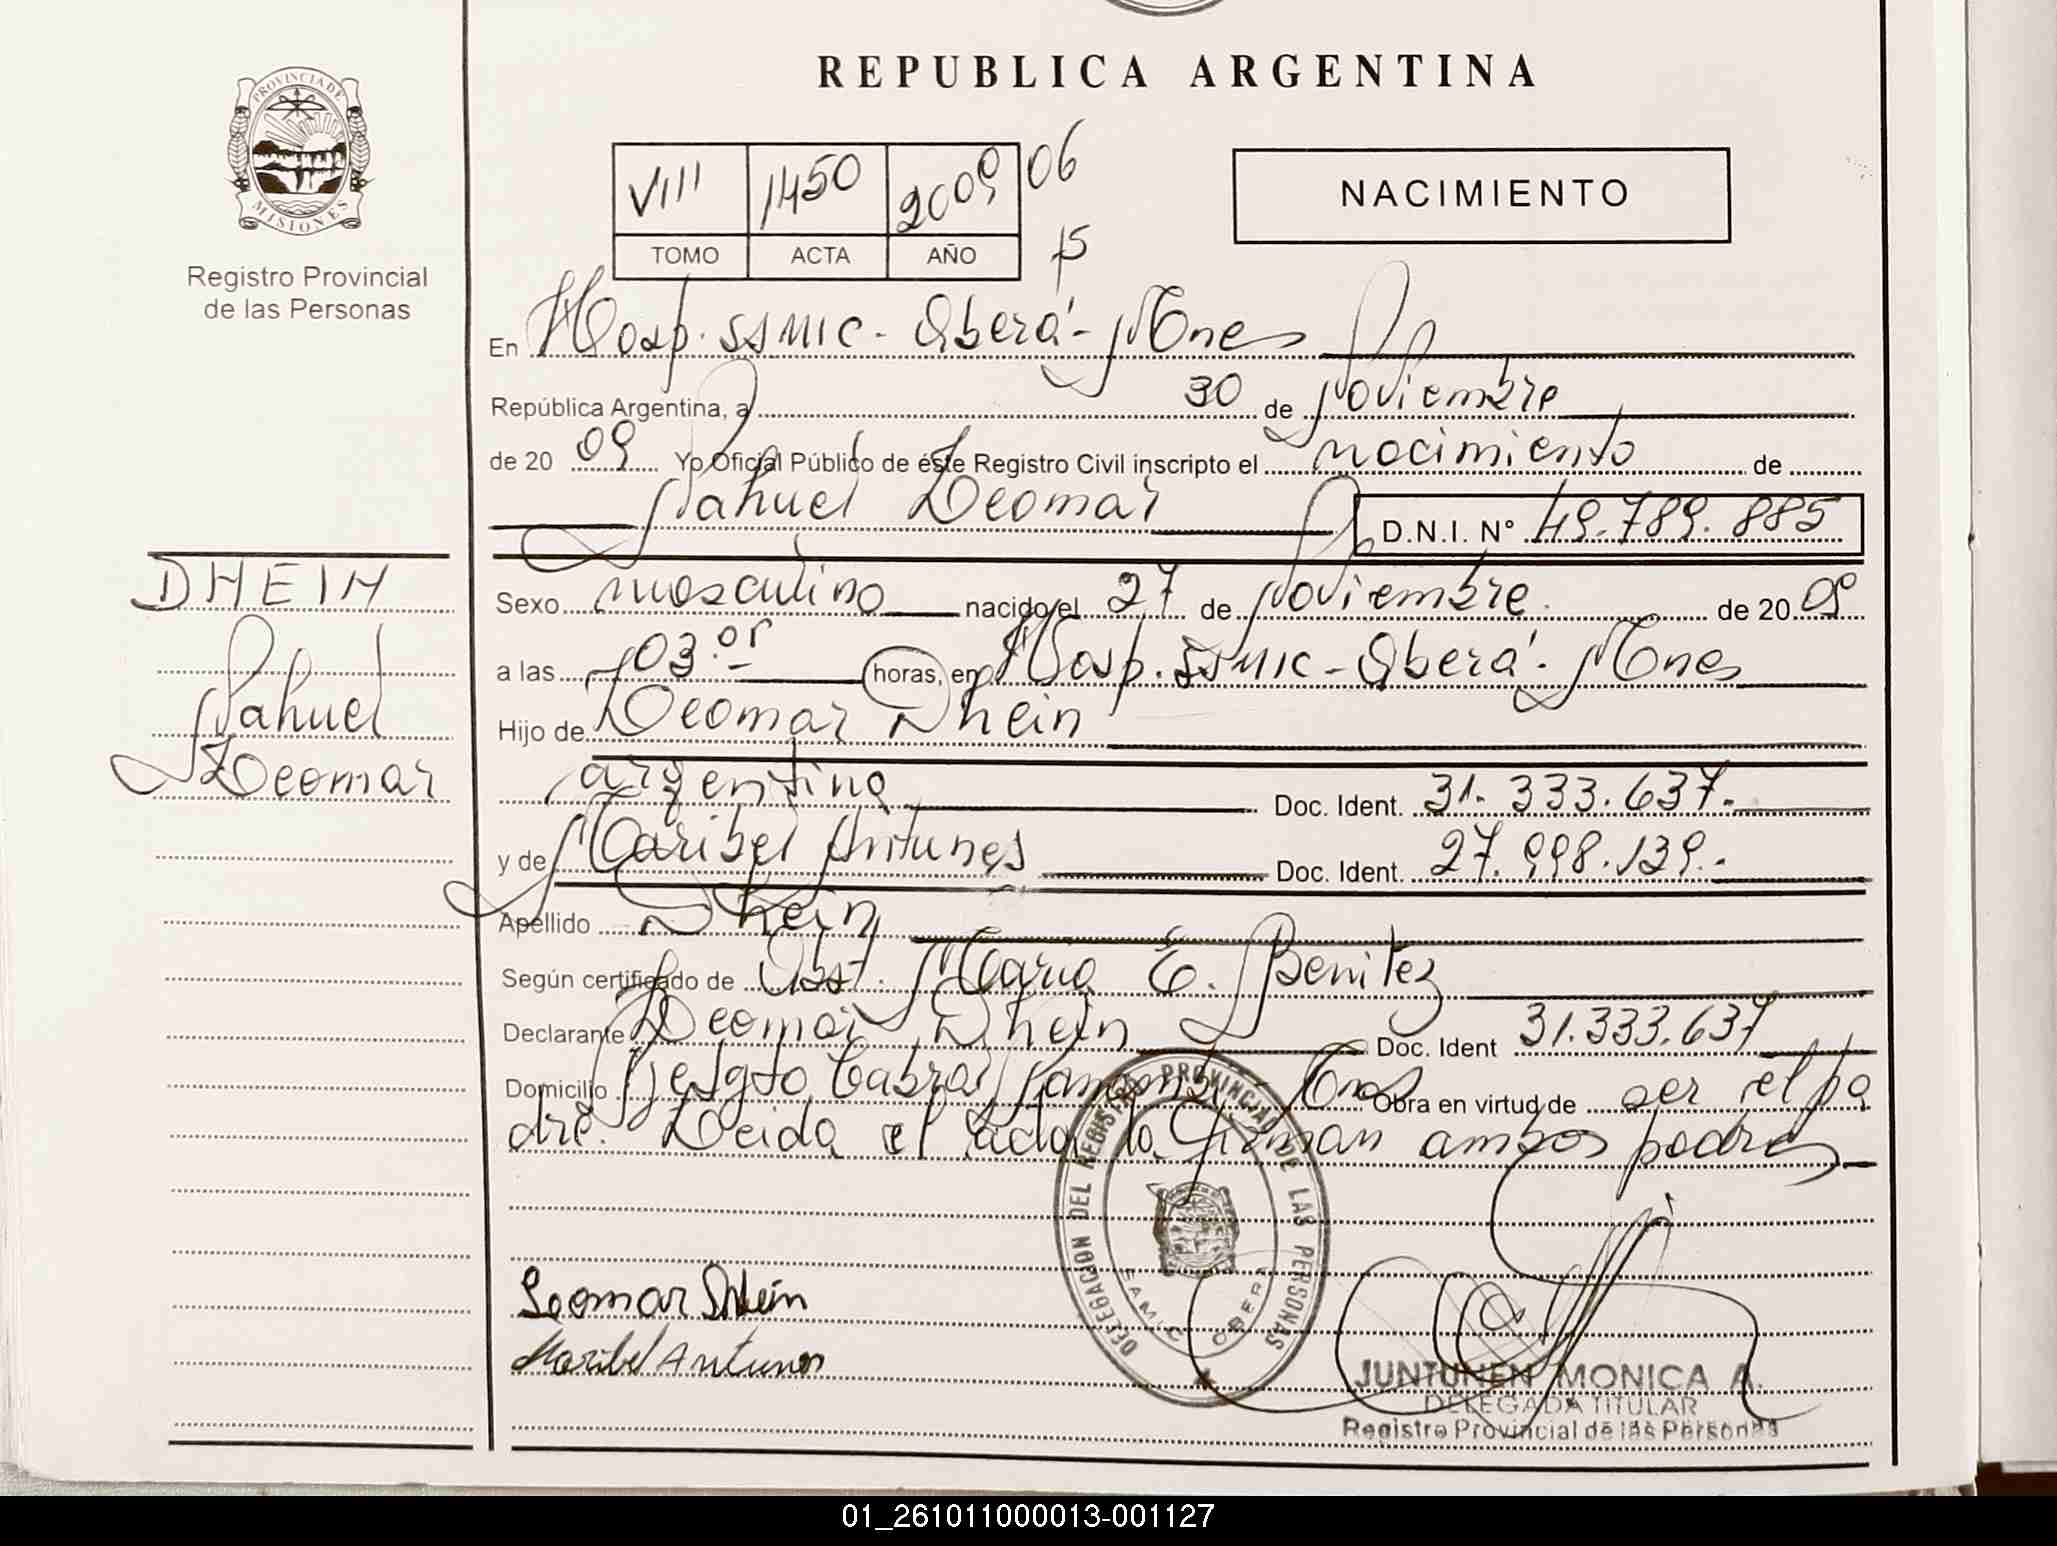 REPUBLICA ARGENTINA
PROVINCIA DE
MISIONES
Registro Provincial
de las Personas
VIII 1450 2009 06
TOMO ACTA AÑO 15
NACIMIENTO
En Hosp. SSMIC - Oberá - Mnes
República Argentina, a 30 de Noviembre
de 20 09 Yo Oficial Público de éste Registro Civil inscripto el nacimiento de
Nahuel Leomar D.N.I. N° 49.789.885
DHEIN
Nahuel
Leomar
Sexo masculino nacido el 27 de Noviembre de 20 09
a las 03.05 horas, en Hosp. SSMIC - Oberá - Mnes
Hijo de Leomar Dhein
argentina Doc. Ident. 31.333.637.-
y de Maribel Antunes Doc. Ident. 27.998.139.-
Apellido Dhein
Según certificado de Obst. Maria E. Benitez
Declarante Leomar Dhein Doc. Ident 31.333.637
Domicilio Sgto Cabral Obra en virtud de ser el pa
dre. Leida el acta la firman ambos padres
DELEGACION DEL REGISTRO PROVINCIAL DE LAS PERSONAS
SAMIC OBERA
Leomar Dhein
Maribel Antunes
JUNTUNEN MONICA A.
DELEGADA TITULAR
Registro Provincial de las Personas
01_261011000013-001127